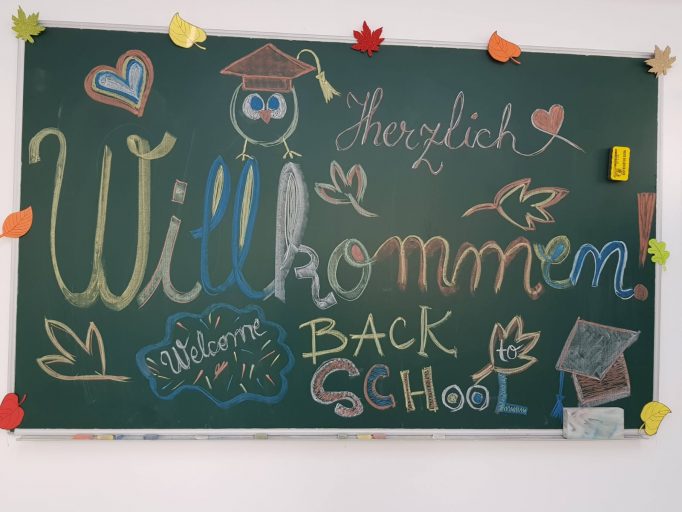 Herzlich
Willkommen!
Welcome
BACK
to
SCHOOL